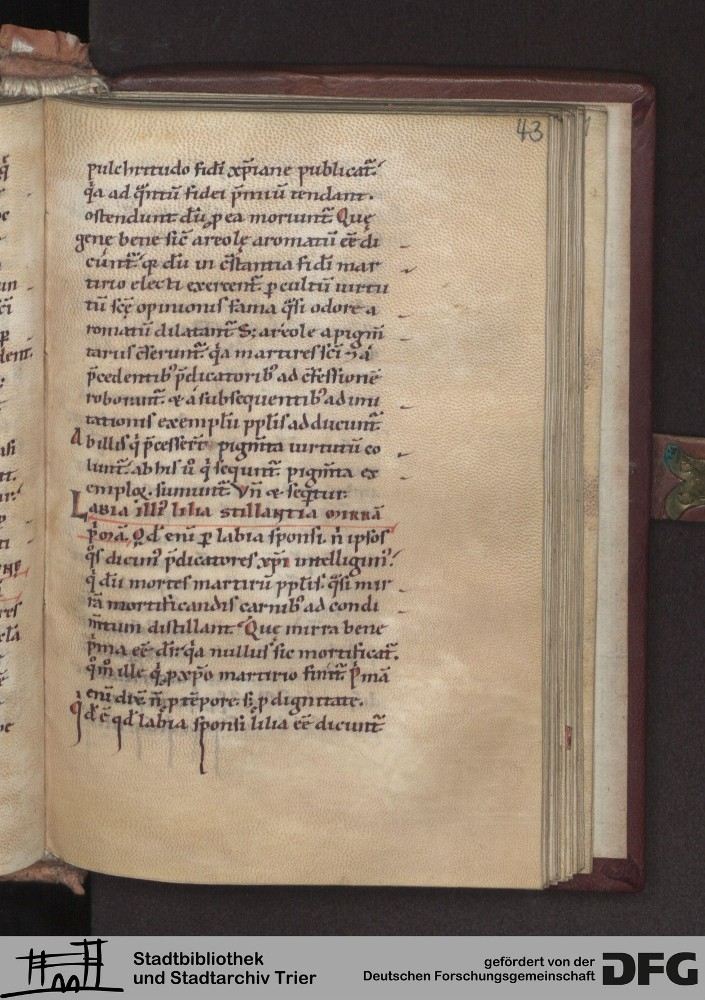 43
pulchritudo fidi xp̄iane publicat᷑.
q̇a ad q̄ntū fidei p̄miū tendant.
ostendunt dū ꝑ ea moriunt᷑. Quę
genę bene sic̄ areolę aromatū eē̄ di
cūnt᷑. qꝛ dū in c̄stantia fidi mar
tirio electi exercent᷑. ꝑ cultū uirtu
tū scę̄ opinionis fama q̄si odore a
romatū dilatant᷑. S; areole a pigm̄
tariis c̄serunt᷑. q̇a martires sc̄i ⁊ a
p̄cedentibꝰ p̄dicatoribꝰ ad c̄fessionē
roborant᷑. & a subsequentibꝰ ad imi
tationis exemplū ppl̄is adducunt᷑.
Ab illis q̇ p̄cesser̄t pigm̄ta uirtutū co
lunt᷑. ab his ū q̇ sequnt᷑. pigm̄ta ex
emploꝝ sumunt᷑. Vn̄ & seq̇tur.
Labia illiꝰ lilia stillantia mirrā
ṗmā. Qd̄ enī ꝑ labia sponsi. n̄ ipsos
q̊s dicimꝰ p̄dicatores xp̄i intelligimꝰ.
q̇ dū mortes martirū ppl̄is. q̄si mir
rā mortificandis carnibꝰ ad condi
m̄tum distillant. Quę mirra bene
ṗma eē̄ dr̄. q̇a nullus sic mortificat᷑.
q̊m̊ ille q̇ ꝓ xp̄o martirio finit᷑. Ṗmā
enī dix̄. n̄ ꝓ tēpore. s; ꝓ dignitate.
Qd̄ ē̄ qd̄ labia sponsi lilia eē̄ dicunt᷑
Stadtbibliothek
und Stadtarchiv Trier
gefördert von der
Deutschen Forschungsgemeinschaft
DFG